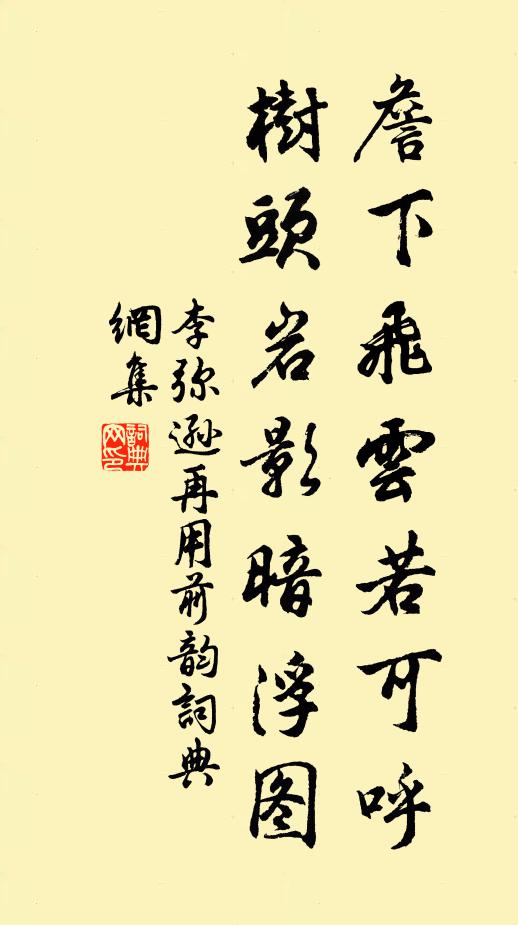 詹下飛雲若可呼
樹頭岩影暗浮图
李弥遜再用前韵詞典
網集
詞典
网印